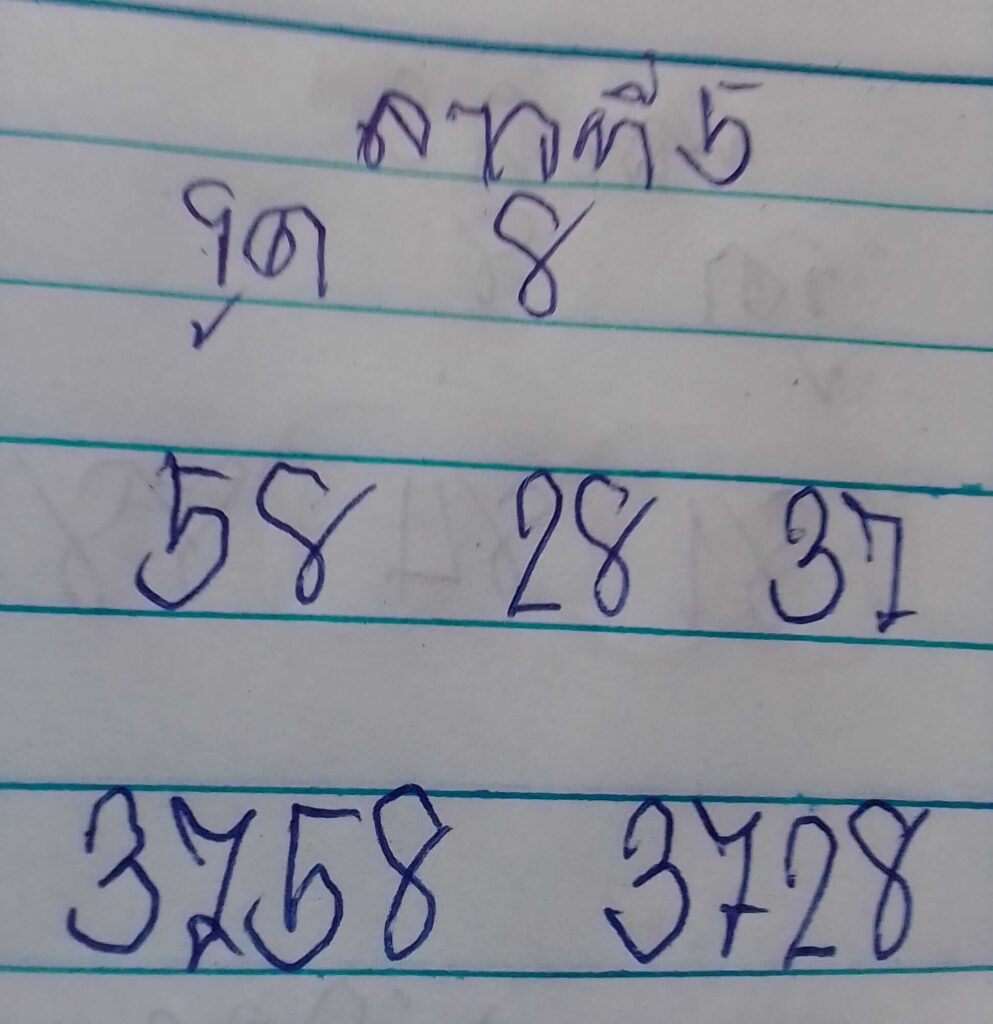 ลาวที่ 5
รูด 8
58 28 37
3758 3728